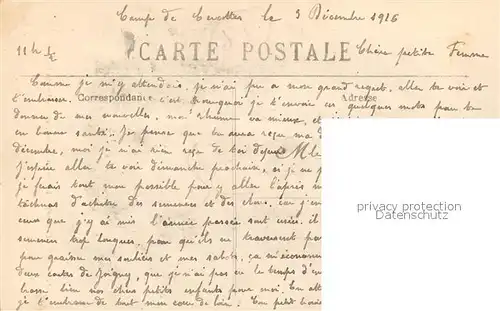 Camp de Cercottes le 3 Décembre 1916
11h ½
CARTE POSTALE
Chère petite Femme
Comme je m'y attendais, je n'ai pu a mon grand regret, aller te voir et
t'embrasser. c'est pourquoi je t'envoie ces quelques mots pour te
Correspondance
Adresse
donner de mes nouvelles, va mieux, et
en bonne santé. Je pense que tu auras reçu ma
décembre, moi je n'ai rien reçu de toi depuis
Mle
j'espère aller te voir dimanche prochain, si je ne
je ferais tout mon possible pour y aller l'après
tâcheras d'acheter des semences et des clous, car
ceux que j'y ai mis l'année passée sont usés. il
semences trop longues, pour qu'ils ne traversent pas
pour graisser mes souliers et mes sabots, ça
deux cartes de Joigny, que je n'ai pas eu le temps
bien nos chers petits enfants pour moi. En
je t'embrasse de tout mon cœur de loin. Ton petit
privacy protection
Datenschutz